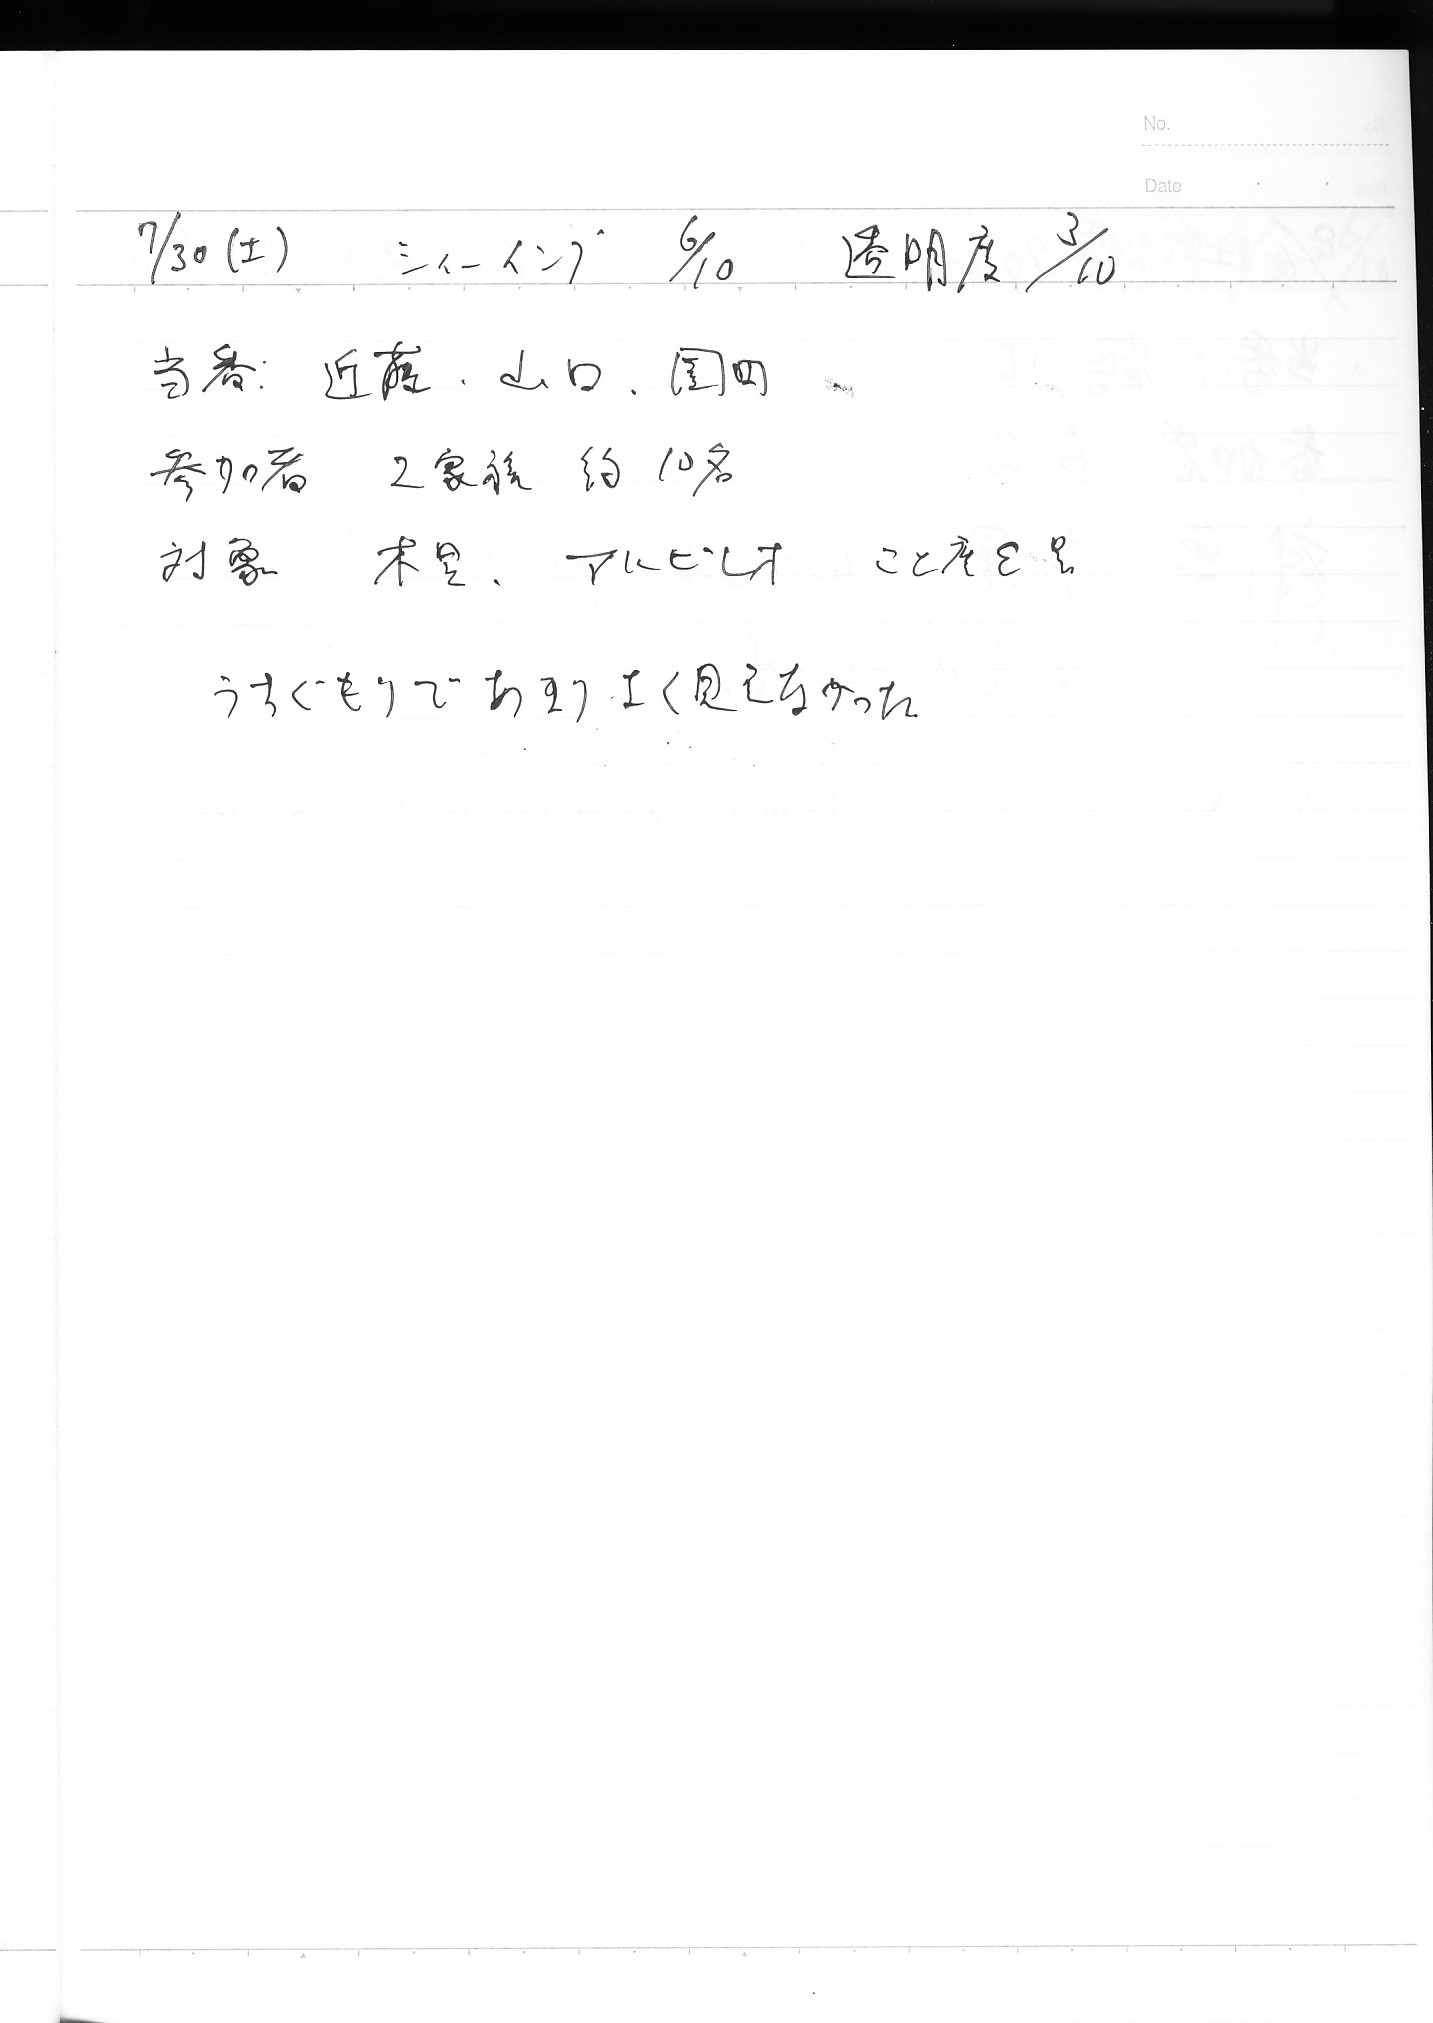 No.
Date
7/30(土) シィーイング 6/10 透明度 3/10
当番: 近藤、山口、園田
参加者 2家族 約10名
対象 木星、アルビレオ こと座ε星
うすぐもりであまりよく見えなかった